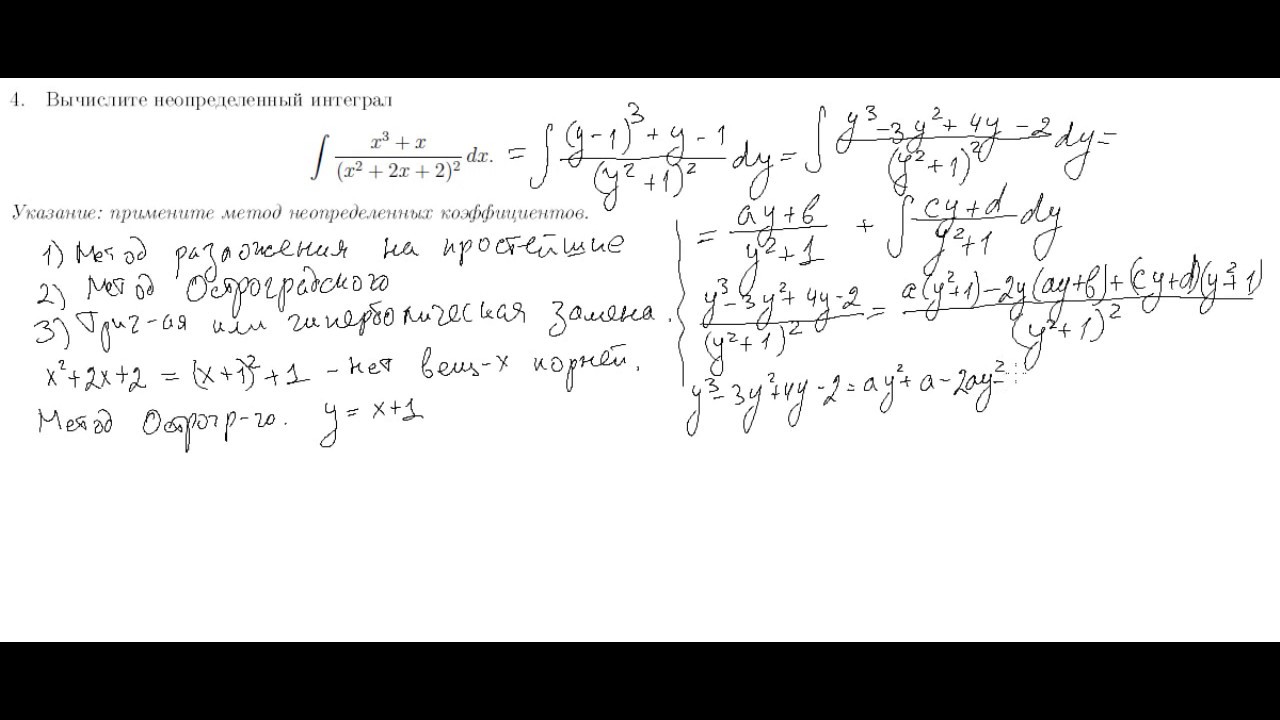 4. Вычислите неопределенный интеграл
∫ (x³ + x)/(x² + 2x + 2)² dx. = ∫ ((y-1)³ + y - 1)/(y² + 1)² dy = ∫ (y³ - 3y² + 4y - 2)/(y² + 1)² dy =
Указание: примените метод неопределенных коэффициентов.
1) Метод разложения на простейшие
2) Метод Остроградского
3) Триг-ая или гиперболическая замена.
x² + 2x + 2 = (x+1)² + 1 - нет вещ-х корней.
Метод Острогр-го. y = x+1
= (ay + b)/(y² + 1) + ∫ (cy + d)/(y² + 1) dy
(y³ - 3y² + 4y - 2)/(y² + 1)² = (a(y²+1) - 2y(ay+b) + (cy+d)(y²+1))/(y² + 1)²
y³ - 3y² + 4y - 2 = ay² + a - 2ay² -